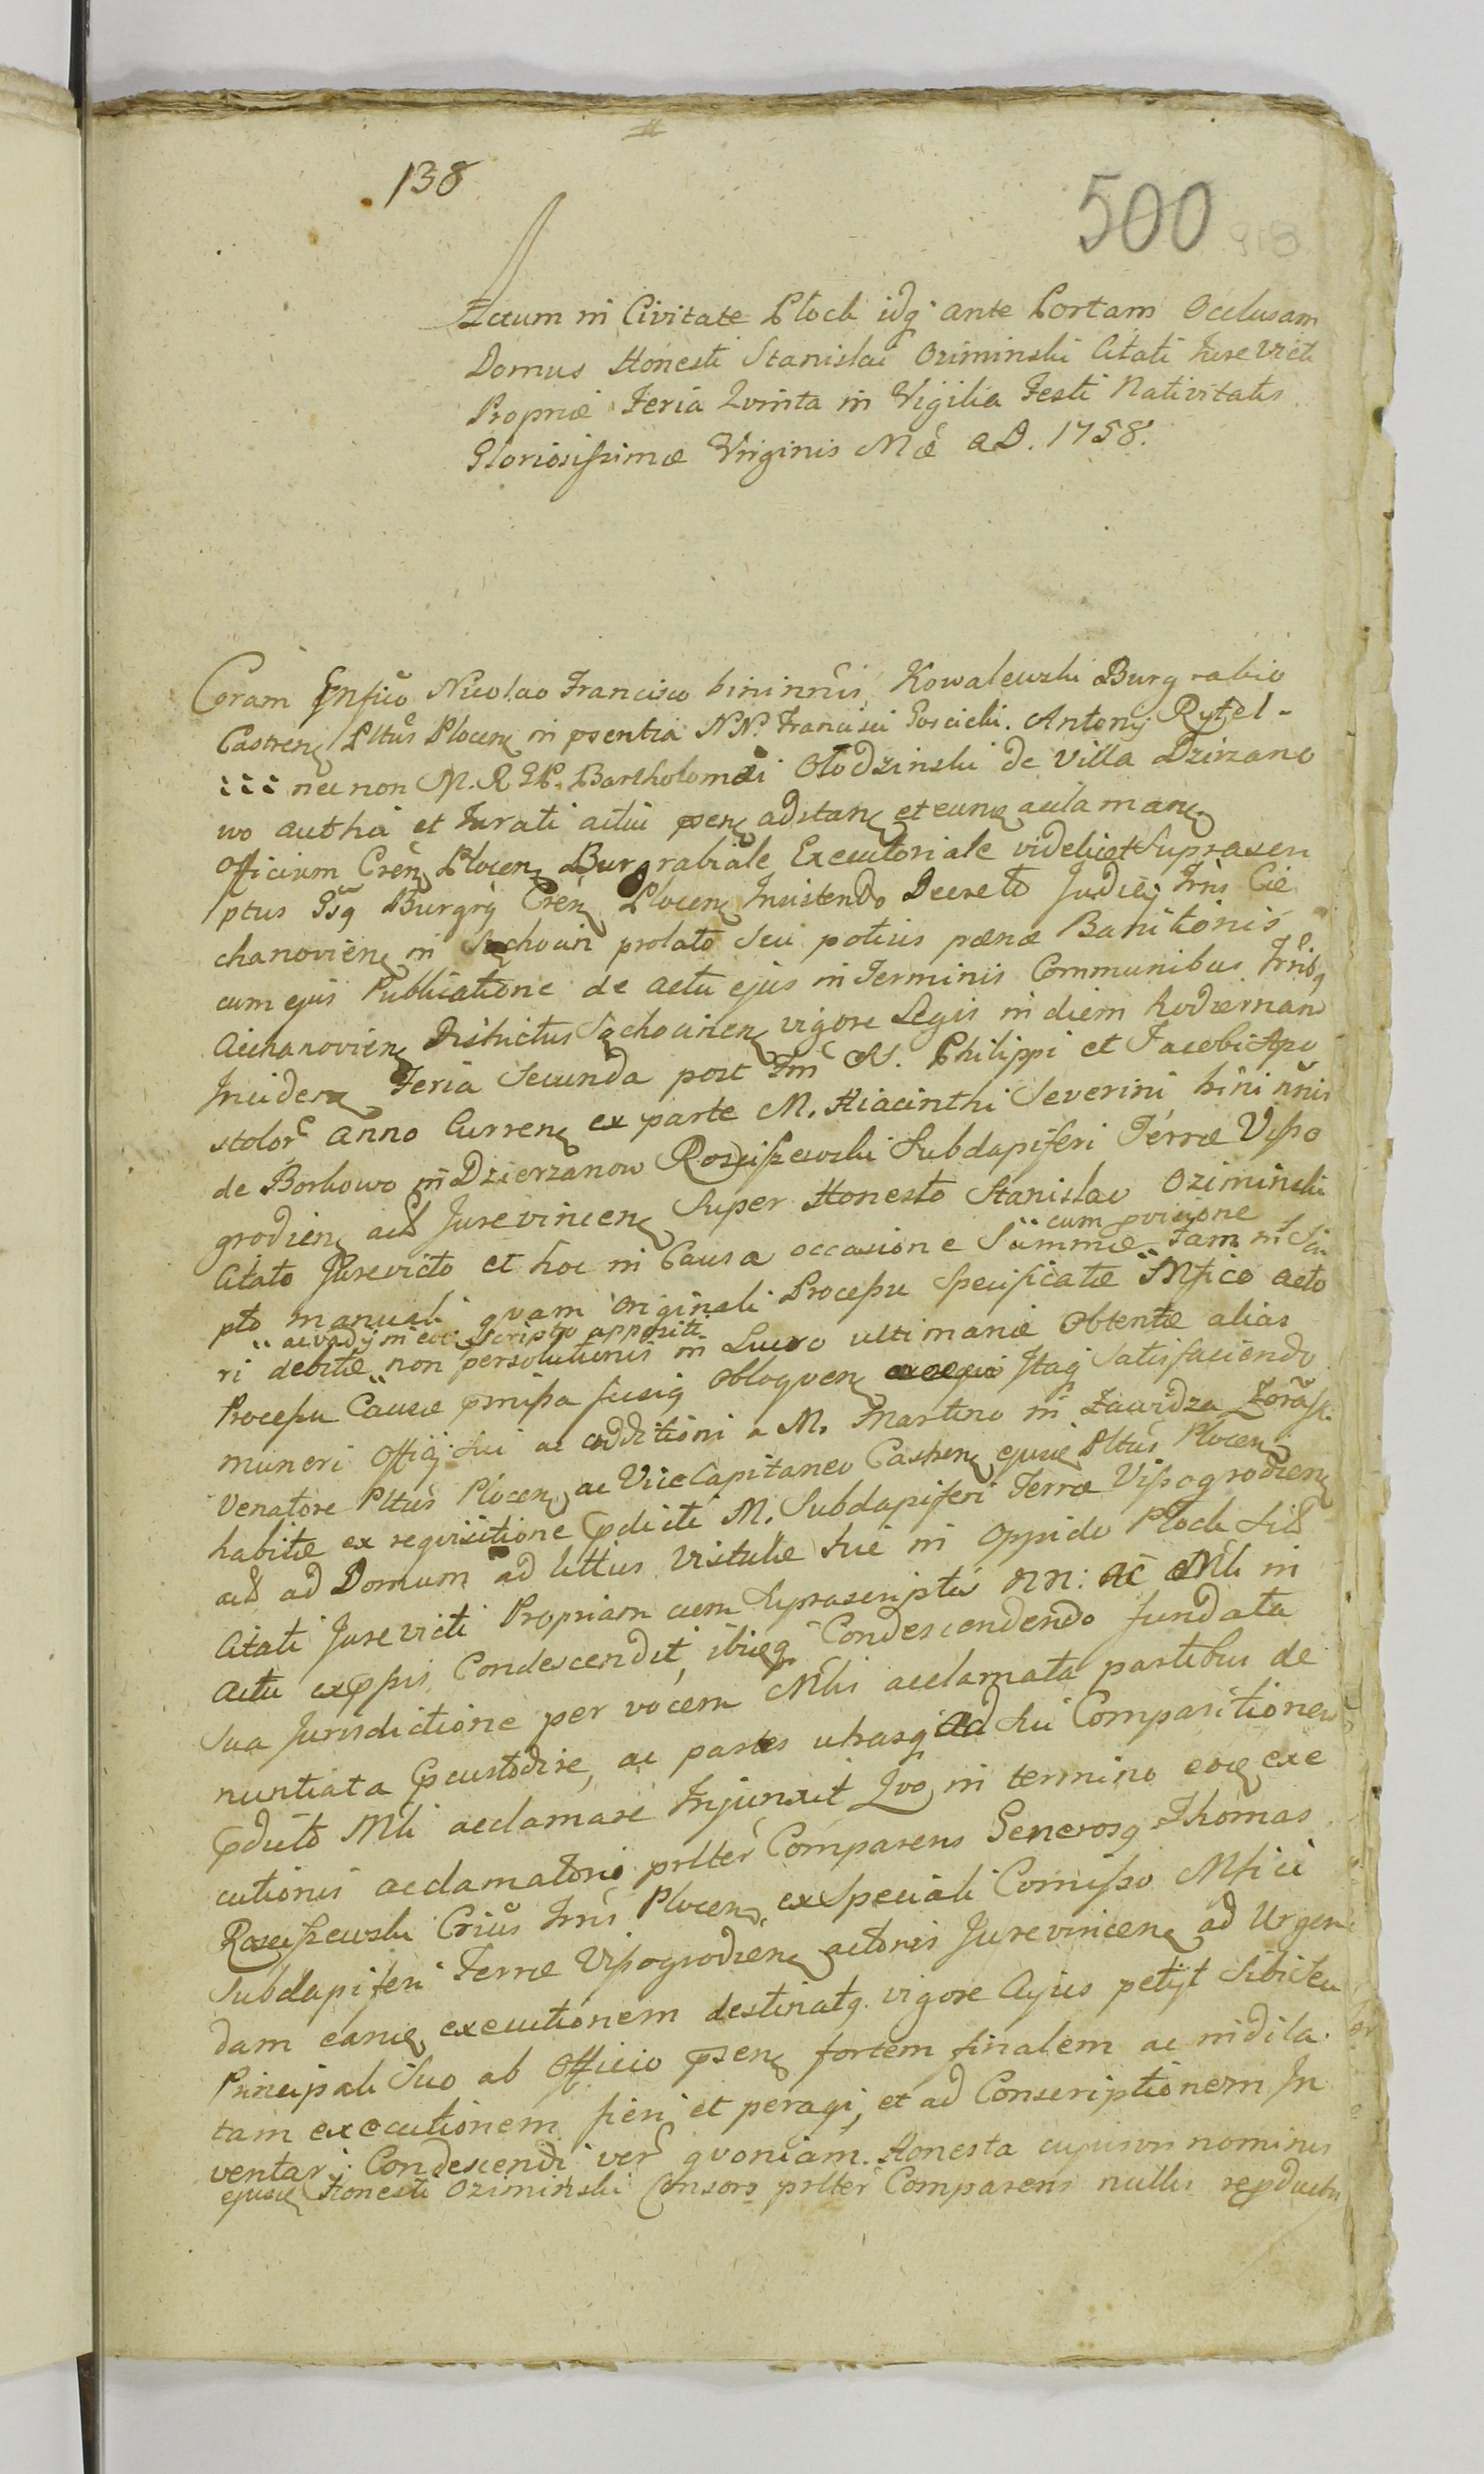 138
500
Actum in Civitate Plock idq ante Portam Occlusam
Domus Honesti Stanislai Oziminski Citati Jurevicti
Propriæ Feria Qvinta in Vigilia Festi Nativitatis
Gloriosissimæ Virginis Mæ A D. 1758.
Coram Gnsico Nicolao Francisco bininnis Kowalewski Burgrabio
Castren Pltus Plocen in psentia N N. Francisci Poscicki. Antonij Rytel-
nec non M. R. Bartholomæi Olodzinski de Villa Dzierzano
wo autha et Jurati actui psen adstan et eunq aclaman
Officium Cren Plocen Burgrabiale Executoriale videlicet Suprascri
ptus Gsq Burgrq Cren Plocen Insistendo Decreto Judicij Trris Cie
chanovien in Sąchocin prolato seu potius pænæ Banitionis
cum ejus Publicatione de actu ejus in Terminis Communibus Trribq
Ciechanovien Districtus Sąchocinen vigore Legis in diem hodiernam
Inciden Feria Secunda post Fm SS. Philippi et Jacobi Apo
stolor Anno Curren ex parte M. Hiacinthi Severini bini nnis
de Borkowo in Dzierzanow Rosciszewski Subdapiferi Terræ Visso
grodien act Jurevincen Super Honesto Stanislao Oziminski
Citato Jurevicto et hoc in Causa occasione Summæ cum pvisione Tam in Scri
pto manuali qvam originali Processu Specificatæ Mfico acto
ri debitæ ac vadij in eoe Scripto appositi non persolutionis in Lucro ultimariæ Obtentæ alias
Processu Causæ pmissa fusiq Obloqven Itaq Satisfaciendo
muneri Officij sui ac additioni a M. Martino in Zawidza
Venatore Pltus Plocen ac Vice Capitaneo Castren ejusq Pltus Plocen
habitæ ex reqvisitione pdicti M. Subdapiferi Terræ Vissogrodien
act ad Domum ad littus Vistulæ Sitæ in Oppido Plock
Citati Jurevicti Propriam cum Suprascriptis nn: ac Mli in
Actu exppis Condescendit, ibiq Condescendendo fundata
Sua Jurisdictione per vocem Mlis acclamata partibus de
nuntiata pcustodire, ac partes utrasq ad sui Comparitionem
pdicto Mli acclamare Injunxit Qvo in termino eoq exe
cutionis acclamatorio prlter Comparens Generosq Thomas
Rosciszewski Crius Trris Plocen, ex Speciali Comisso Mfici
Subdapiferi Terræ Vissogrodien actoris Jurevincen ad Urgen
dam eanq executionem destinatq. vigore Cujus petijt Sibi seu
Principali Suo ab Officio psen fortem finalem ac indila
tam executionem fieri et peragi, et ad Conscriptionem In
ventarij Condescendi ver qvoniam. Honesta cujusvis nominis
ejusq Honesti Oziminski Consors prlter Comparens nullis repductis